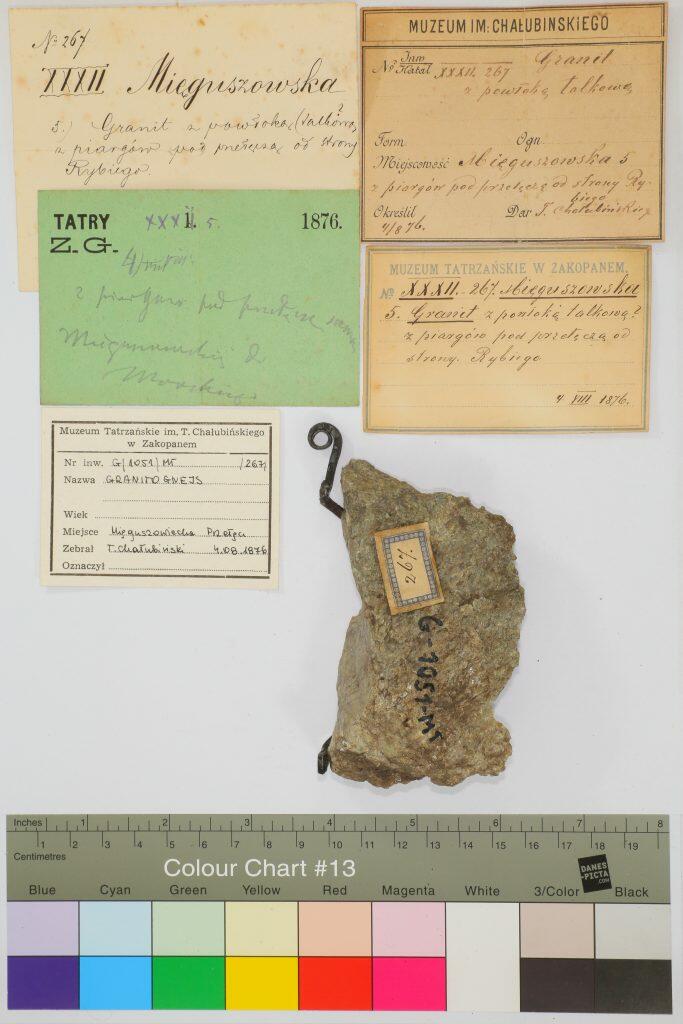 No 267
XXXII Mięguszowska
5.) Granit z powłoką (talkową?
z piargów pod przełęczą od strony
Rybiego.
MUZEUM IM: CHAŁUBIŃSKIEGO
No Inw Katal XXXII. 267 Granit
z powłoką talkową
Form Ogn.
Miejscowość Mięguszowska 5
z piargów pod przełęczą od strony Ry-
biego
Określił Dar T. Chałubińskiego
4/8 76.
TATRY XXXII. 5. 1876.
Z. G.
4/VIII
z piargów pod przełęczą
Morskiego
MUZEUM TATRZAŃSKIE W ZAKOPANEM.
No XXXII. 267. Mięguszowska
5. Granit z powłoką talkową?
z piargów pod przełęczą od
strony Rybiego
4 VIII 1876.
Muzeum Tatrzańskie im. T. Chałubińskiego
w Zakopanem
Nr inw. G/1051/MT /267/
Nazwa GRANITOGNEJS
Wiek
Miejsce Mięguszowiecka Przełęcz
Zebrał T. Chałubiński 4.08.1876
Oznaczył
267.
G-1051-MT
Inches 1 2 3 4 5 6 7 8
1 2 3 4 5 6 7 8 9 10 11 12 13 14 15 16 17 18 19
Centimetres
Colour Chart #13
DANES
-PICTA
.COM
Blue Cyan Green Yellow Red Magenta White 3/Color Black